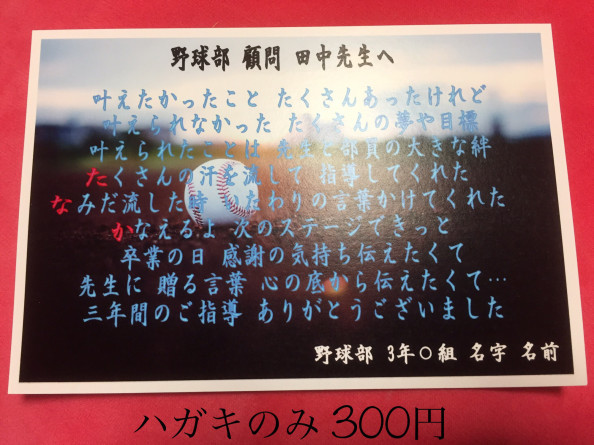 野球部 顧問 田中先生へ
叶えたかったこと たくさんあったけれど
叶えられなかった たくさんの夢や目標
叶えられたことは 先生と部員の大きな絆
たくさんの汗を流して 指導してくれた
なみだ流した時 いたわりの言葉かけてくれた
かなえるよ 次のステージできっと
卒業の日 感謝の気持ち伝えたくて
先生に 贈る言葉 心の底から伝えたくて…
三年間のご指導 ありがとうございました
野球部 3年○組 名字 名前
ハガキのみ 300円